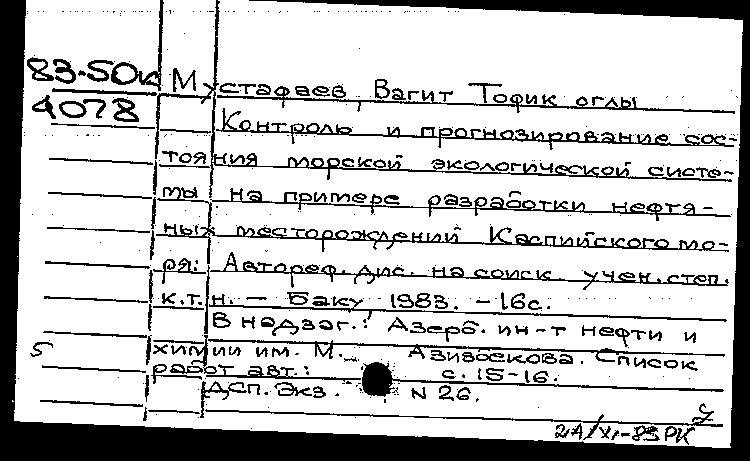 83-50к Мустафаев, Вагит Тофик оглы
4078 Контроль и прогнозирование сос-
тояния морской экологической систе-
мы на примере разработки нефтя-
ных месторождений Каспийского мо-
ря: Автореф. дис. на соиск. учен. степ.
к.т.н. – Баку 1983. – 16с.
В надзаг.: Азерб. ин-т нефти и
5 химии им. М. Азизбекова. Список
работ авт.: с. 15-16.
ДСП. Экз. N 26.